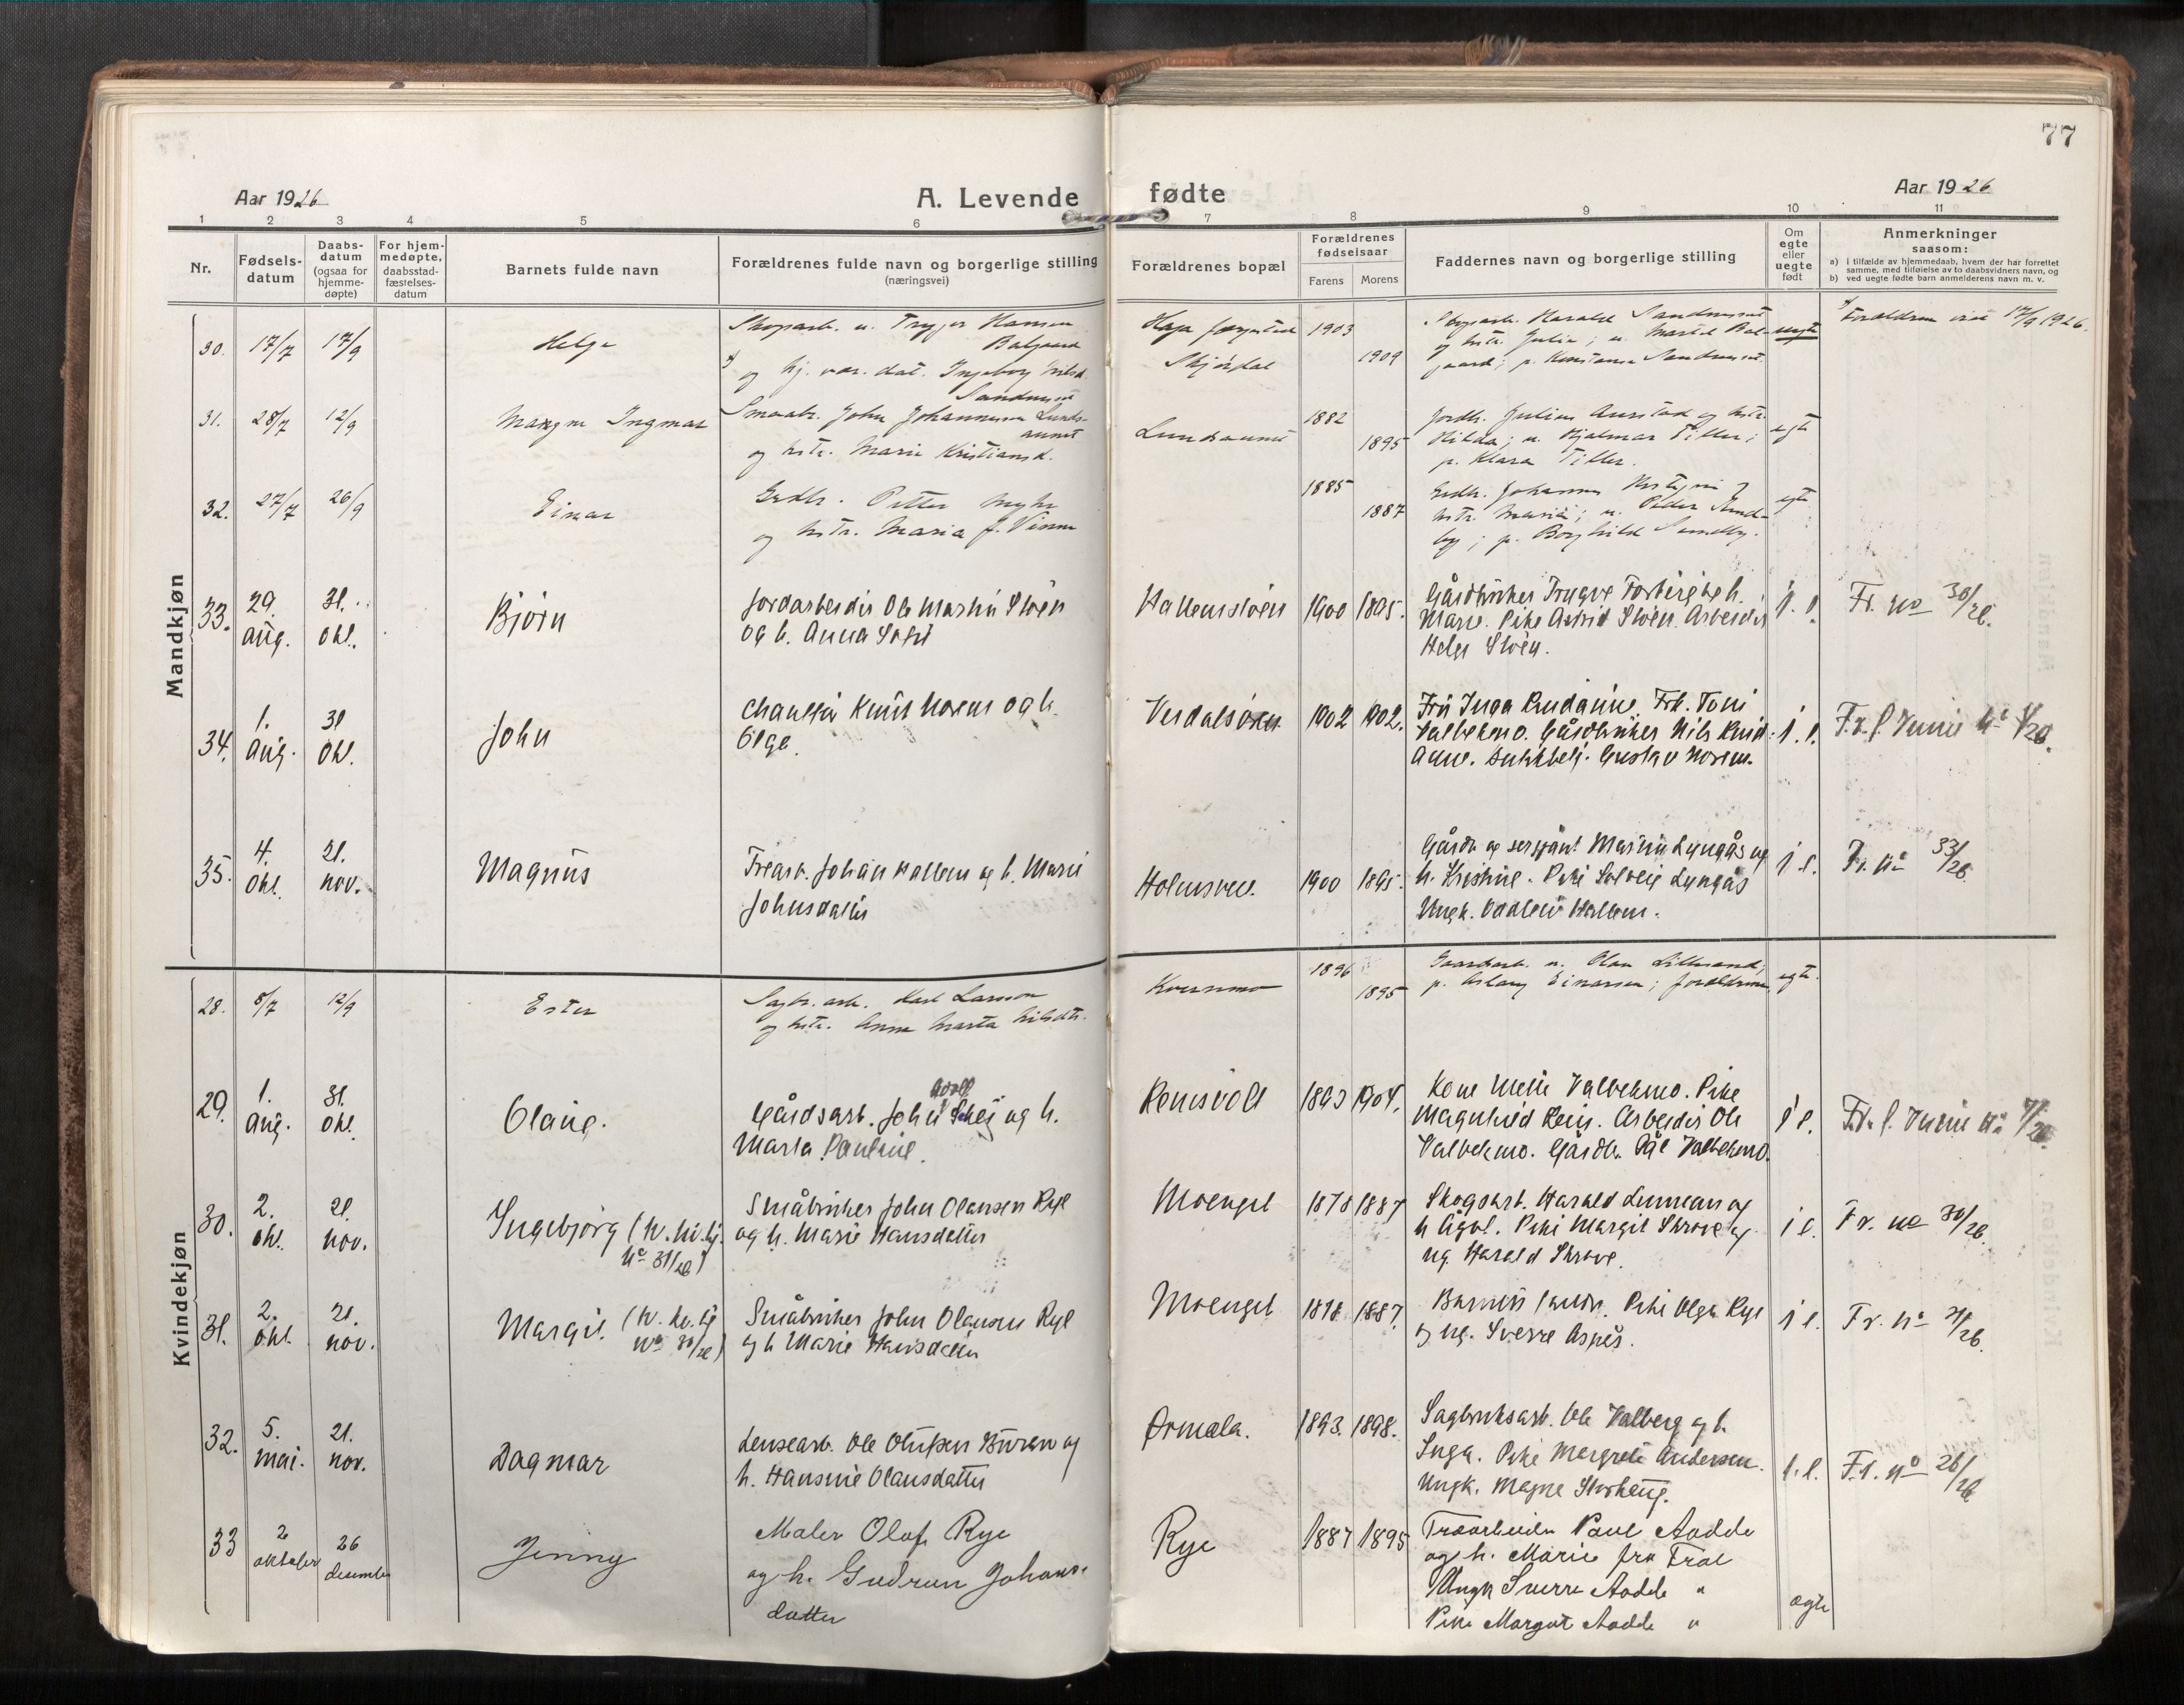 77
Aar 1926
A. Levende fødte
Aar 1926
1 2 3 4 5 6 7 8 9 10 11
Nr.
Fødsels-
datum
Daabs-
datum
(ogsaa for
hjemme-
døpte)
For hjem-
medøpte,
daabsstad-
fæstelses-
datum
Barnets fulde navn
Forældrenes fulde navn og borgerlige stilling
(næringsvei)
Forældrenes bopæl
Forældrenes
fødselsaar
Farens Morens
Faddernes navn og borgerlige stilling
Om
egte
eller
uegte
født
Anmerkninger
saasom:
a) i tilfælde av hjemmedaab, hvem der har forrettet
samme, med tilføielse av to daabsvidners navn, og
b) ved uegte fødte barn anmelderens navn m. v.
Mandkjøn
30. 17/7 17/9 Helge
Skogsarb. u. Trygve Hansen
Balgaard
og hj. vær. dat. Ingeborg Nilsd.
Sandmust
Skjørdal
1903
1909
Skogsarb. Harald
og hstr. Julie; u.
uegte
Forældrene viet 17/9 1926.
31. 28/7 12/9 Magne Ingmar
Smaabr. John Johannesen Lunds-
aunet
og hstr. Marie Kristiansd.
Lundsaunet
1882
1895
Grdbr. Julius Aunstad og hstr.
Hilda; u. Hjalmar Tiller;
p. Klara Tiller.
egte
32. 27/7 26/9 Einar
Grdbr. Petter Myhr
og hstr. Maria J. Vinne
1885
1887
Grdbr. Johannes
hstr. Maria; u. Peder Sund-
by; p. Borghild Sundby.
egte
33. 29. aug. 31. okt. Bjørn
Jordarbeider Ole Martin Sloen
og h. Anna Sofie
Hallemsloen
1900 1895.
Gårdbruker Trygve Forberg og h.
Marie. Pike Astrid Sloen. Arbeider
Helge Sloen.
Fr. no 30/26.
34. 1. aug. 31 okt. John
Chauffør Knut Norem og h.
Olga.
Verdalsøren
1902 1902.
Frü Inga Rindanne. Frk. Toni
Valbekmo. Gårdbruker Nils Rind-
anne. Butikbetj. Gustav Norem.
Fr. f. Vinne
35. 4. okt. 21. nov. Magnus
Træarb. Johan Hallem og h. Marie
Johnsdatter
Holmsveet
1900 1895.
Gårdb. og sersjant Martin Lyngås og
h. Kristine. Pike Solveig Lyngås
Ungk. Oddleiv Hallem.
Fr. no 33/26.
Kvindekjøn
28. 8/7 12/9 Ester
Sagbr. arb. Karl Larsson
og hstr. Anna Marta Nilsdtr.
Kvernmo
1896
1895
Gaardarb. u. Olav Lillesand;
p. Aslaug Einarsen; forældrene
egte.
29. 1. aug. 31. okt. Olaug.
Gårdsarb. John Skei og h.
Marta Pauline.
Remsvoll
1893 1904.
Kone Mette Valbekmo. Pike
Magnhild Rein. Arbeider Ole
Valbekmo. Gårdbr. Pål Valbekmo.
Fr. f. Vinne no 7/26.
30. 2. okt. 21. nov. Ingebjørg
no 31/26)
Småbruker John Olausen Rye
og h. Marie Hansdatter
Moenget
1878 1887
Skogsarb. Harald Lunnan og
h Ågot. Pike Margit Skrove og
ug. Harald Skrove.
Fr. no 30/26.
31. 2. okt. 21. nov. Margit.
no 30/26)
Småbruker John Olausen Rye
og h Marie Hansdatter
Moenget
1878 1887.
Barnets foreldre. Pike Olga Rye
og ug. Sverre Aspås.
Fr. no 31/26.
32. 5. mai. 21. nov. Dagmar
Lensearb. Ole Olufsen Buran og
h. Hansine Olausdatter
Ørmela.
1893. 1898.
Sagbruksarb. Ole Valberg og h.
Inga. Pike Margrete Andersen.
Ungk. Magne Storhaug.
Fr. no 26/26
33 2 oktober 26 desember Jenny
Maler Olaf Rye
og h. Gudrun Johans-
datter
Rye
1887 1895
Træarbeider Paul Aadde
og h. Marie fra Frol
Ungk Sverre Aadde "
Pike Margot Aadde "
egte